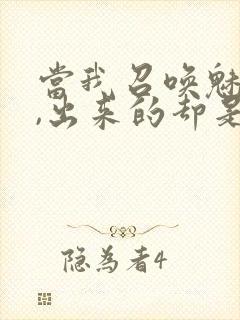 當我召唤魅
,出来的却是
隐為者4